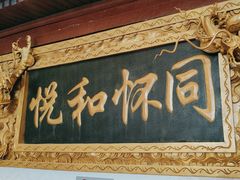 同怀和悦